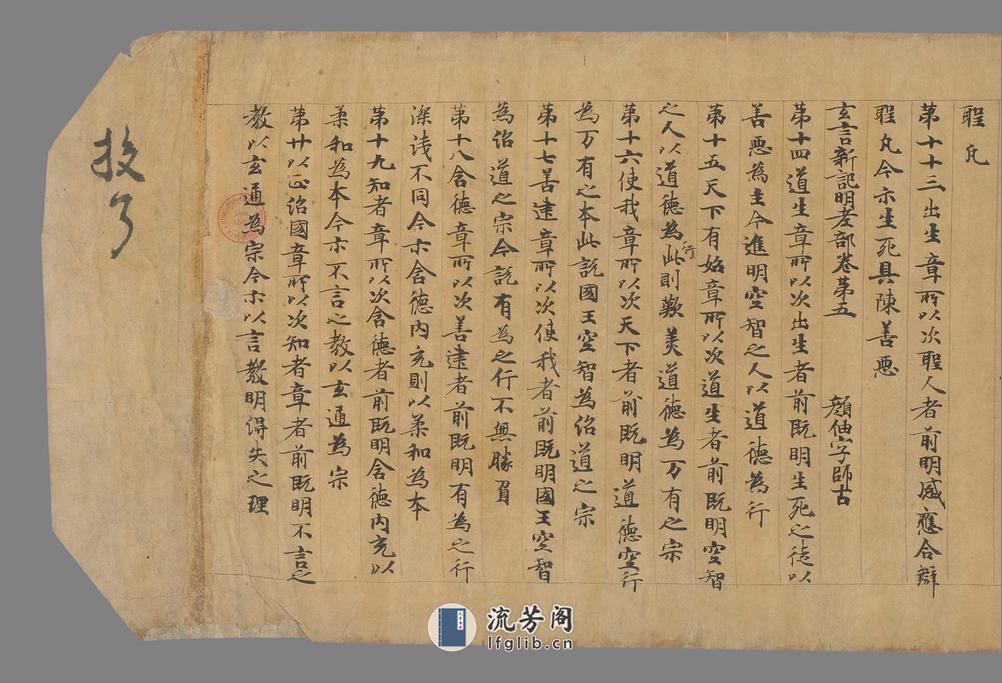 聖凡
第十十三出生章所以次聖人者前明感應合辯
聖凡今亦生死具陳善惡
玄言新記明老部卷第五 顏伷字師古
第十四道生章所以次出生者前既明生死之徒以
善惡為主今進明空智之人以道德為行
第十五天下有始章所以次道生者前既明空智
之人以道德為行此則歎美道德為万有之宗
第十六使我章所以次天下者前既明道德空行
為万有之本此説國王空智為侶道之宗
第十七善建章所以次使我者前既明國王空智
為侶道之宗今説有為之行不無勝負
第十八含德章所以次善建者前既明有為之行
深浅不同今亦含德內充則以柔和為本
第十九知者章所以次含德者前既明含德內充以
柔和為本今亦不言之教以玄通為宗
第廿以正治國章所以次知者章者前既明不言之
教以玄通為宗今亦以言教明得失之理
流芳阁
lfglib.cn